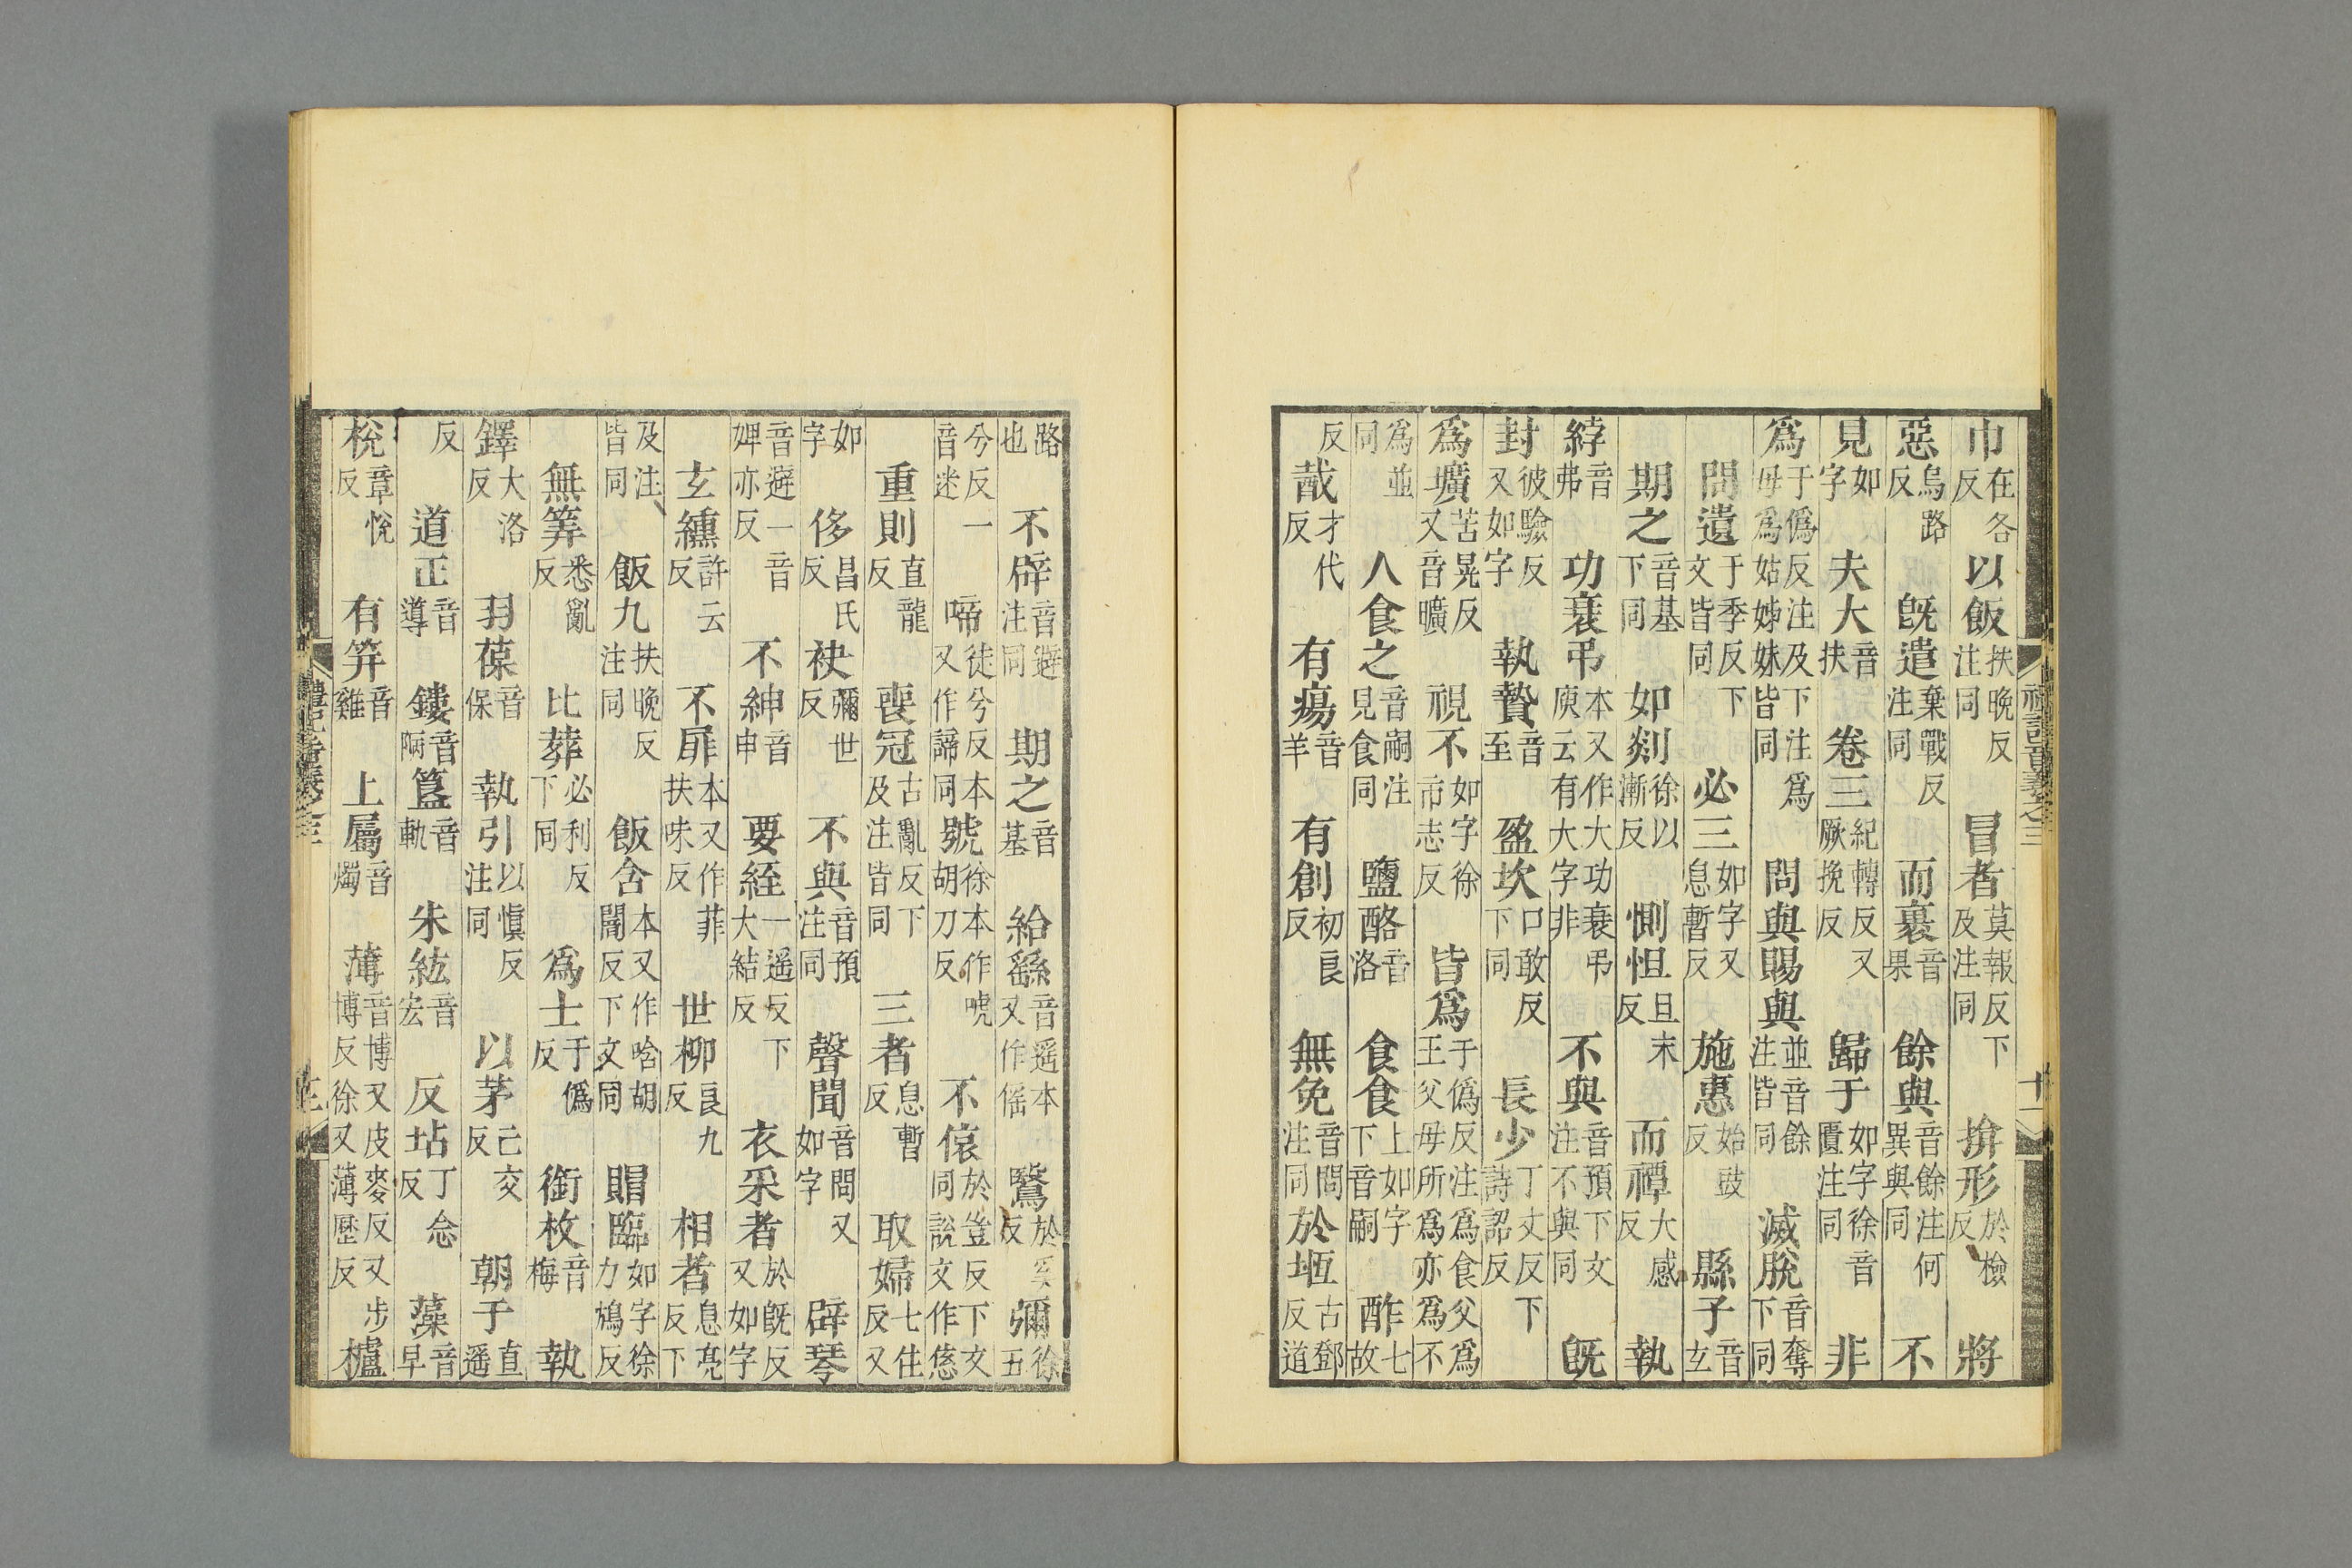 巾在各反以飯扶晚反注同冒者莫報反下及注同揜形於檢反將
惡烏路反旣遣棄戰反注同而裹音果餘與音餘注何異與同不
見如字夫大音扶卷三紀轉反又厥挽反歸于如字徐音匱注同非
爲于僞反注及下注爲毋爲姑姊妹皆同問與賜與並音餘注皆同滅脫音奪下同
問遺于季反下文皆同必三如字又息暫反施惠始豉反縣子音玄
期之音基下同如剡徐以漸反惻怛旦末反而禫大感反執
綍音弗功衰弔本又作大功衰弔庾云有大字非不與音預下文注不與同旣
封彼驗反又如字執贄音至盈坎口敢反下同長少丁丈反下詩詔反
爲壙苦晃反又音曠視不如字徐市志反皆爲于僞反注爲食父爲王父母所爲亦爲不
爲並同人食之音嗣注見食同鹽酪音洛食食上如字下音嗣酢七故
反哉才代反有瘍音羊有創初良反無免音問注同於堩古鄧反道
禮記音義之三
十一
路也不辟音避注同期之音基給繇音遥本又作徭鷖於奚反彌徐五
兮反一音迷啼徒兮反本又作諦同號徐本作唬胡刀反不偯於豈反下文同說文作㥋
重則直龍反喪冠古亂反下及注皆同三者息暫反取婦七住反又
如字侈昌氏反袂彌世反不與音預注同聲聞音問又如字辟琴
音避一音婢亦反不紳音申要絰一遥反下大結反衣采者於旣反又如字
玄纁許云反不屝本又作菲扶味反世柳良九反相者息亮反下
及注皆同飯九扶晚反注同飯含本又作唅胡闇反下文同賵臨如字徐力鴆反
無筭悉亂反比葬必利反下同爲士于僞反銜枚音梅執
鐸大洛反羽葆音保執引以愼反注同以茅亡交反朝于直遥
反道正音導鏤音陋簋音軌朱紘音宏反坫丁念反藻音早
梲章悅反有笄音雞上屬音燭薄音博又皮麥反又步博反徐又薄歷反櫨